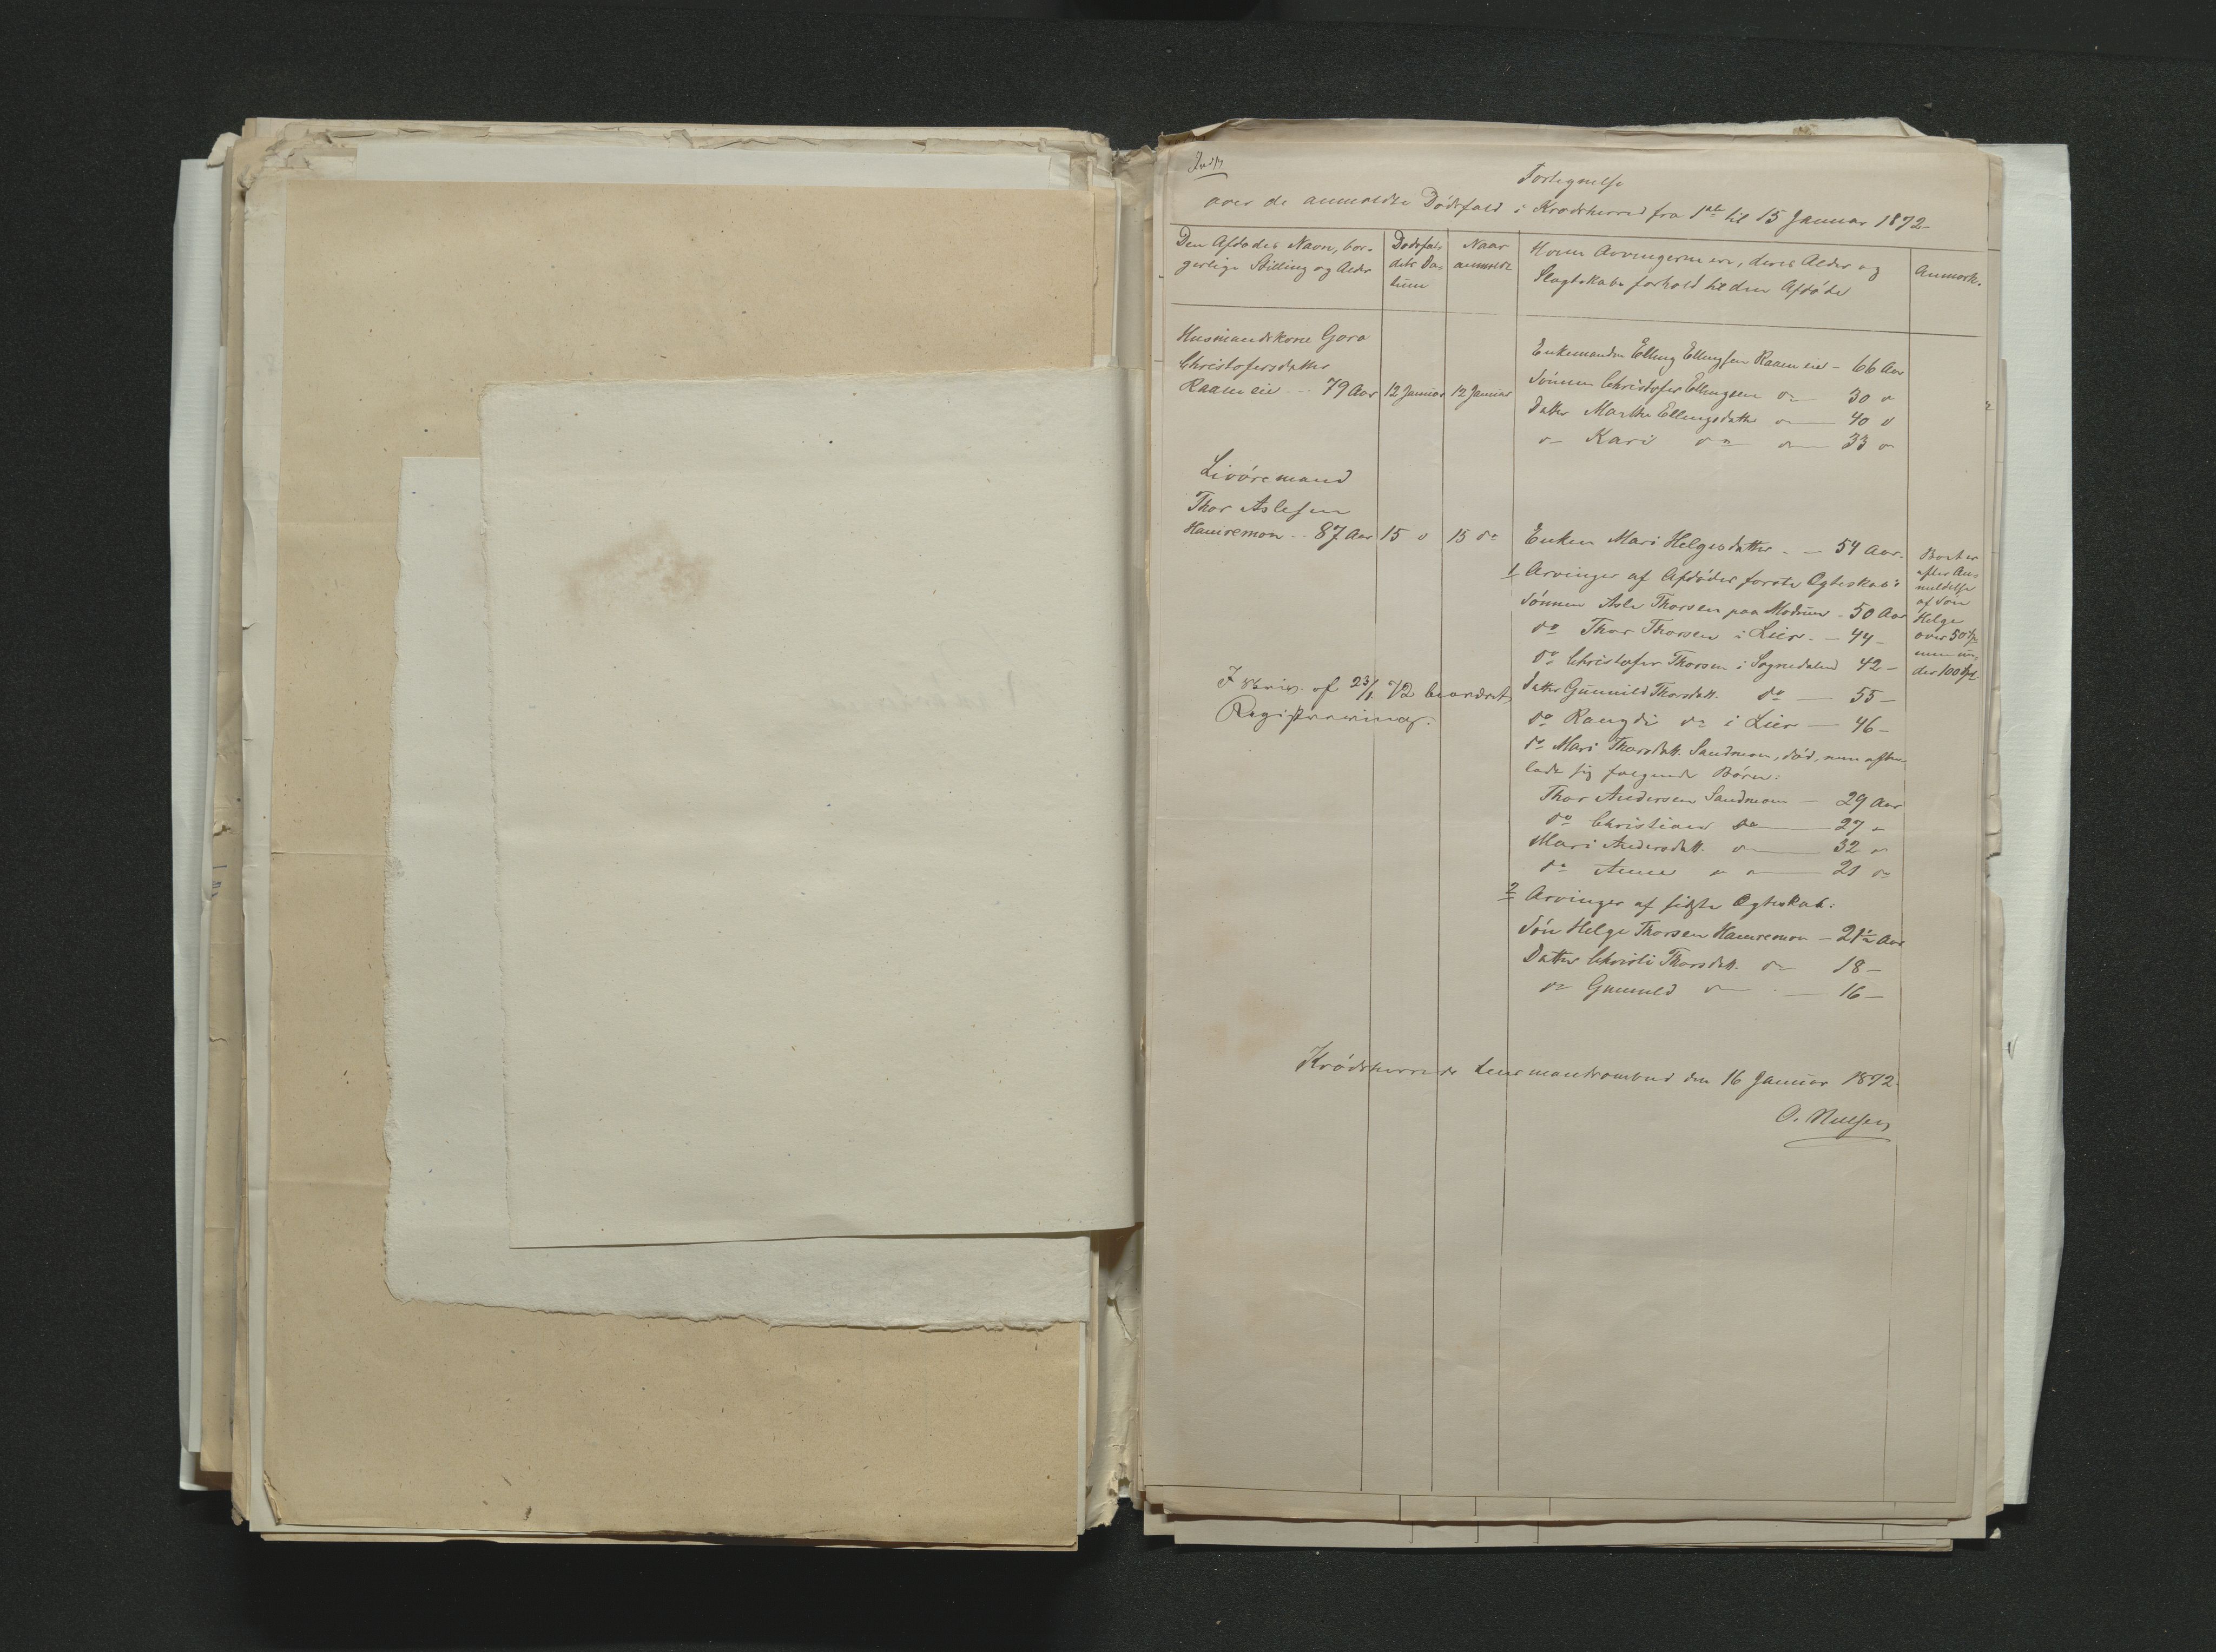 Fortegnelse
over de anmeldte Dödsfald i Krödsherred fra 1ste til 15 Januar 1872
Den Afdödes Navn, bor-
gerlige Stilling og Alder
Dödsfal-
dets Da-
tum
Naar
anmeldt
Hvem Arvingerne ere, deres Alder og
Slægtskabsforhold til den Afdöde
Anmærk.
Husmandskone Goro
Christofersdatter
Raamen eie - - 79 Aar 12 Januar 12 Januar
Enkemanden Elling Ellingsen Raamen eie - 66 Aar
Sönnen Christofer Ellingsen do 30 do
Datter Marthe Ellingsdatter do 40 do
do Kari do do 33 do
Livöremand
Thor Aslesen
Hamremon - - 87 Aar 15 do 15 do
Enken Mari Helgesdatter - - 54 Aar.
1 Arvinger af Afdödes förste Egteskab:
Sönnen Asle Thorsen paa Modum - 50 Aar
do Thor Thorsen i Lier - - 44 -
do Christofer Thorsen i Sognedalen 42 -
Datter Gunnild Thorsdatt. do - 55 -
do Rangdi do i Lier - 46 -
do Mari Thorsdatt. Sandmon, död, men efter-
lade sig fölgende Börn:
Thor Andersen Sandmon - 29 Aar
do Christian do 27 -
Mari Andersdatt. do 32 do
do Anne do do 21 do
2 Arvinger af sidste Egteskab:
Sön Helge Thorsen Hamremon - 21½ Aar
Datter Christi Thorsdatt. do 18 -
do Gunnild do - 16 -
Boet er
efter An-
meldelse
af Sön
Helge
over 50 Spd
men un-
der 100 Spd
I Skriv. af 23/1 72 beordret
Registrering.
Krödsherreds Lensmandsombud den 16 Januar 1872
O. Nielsen